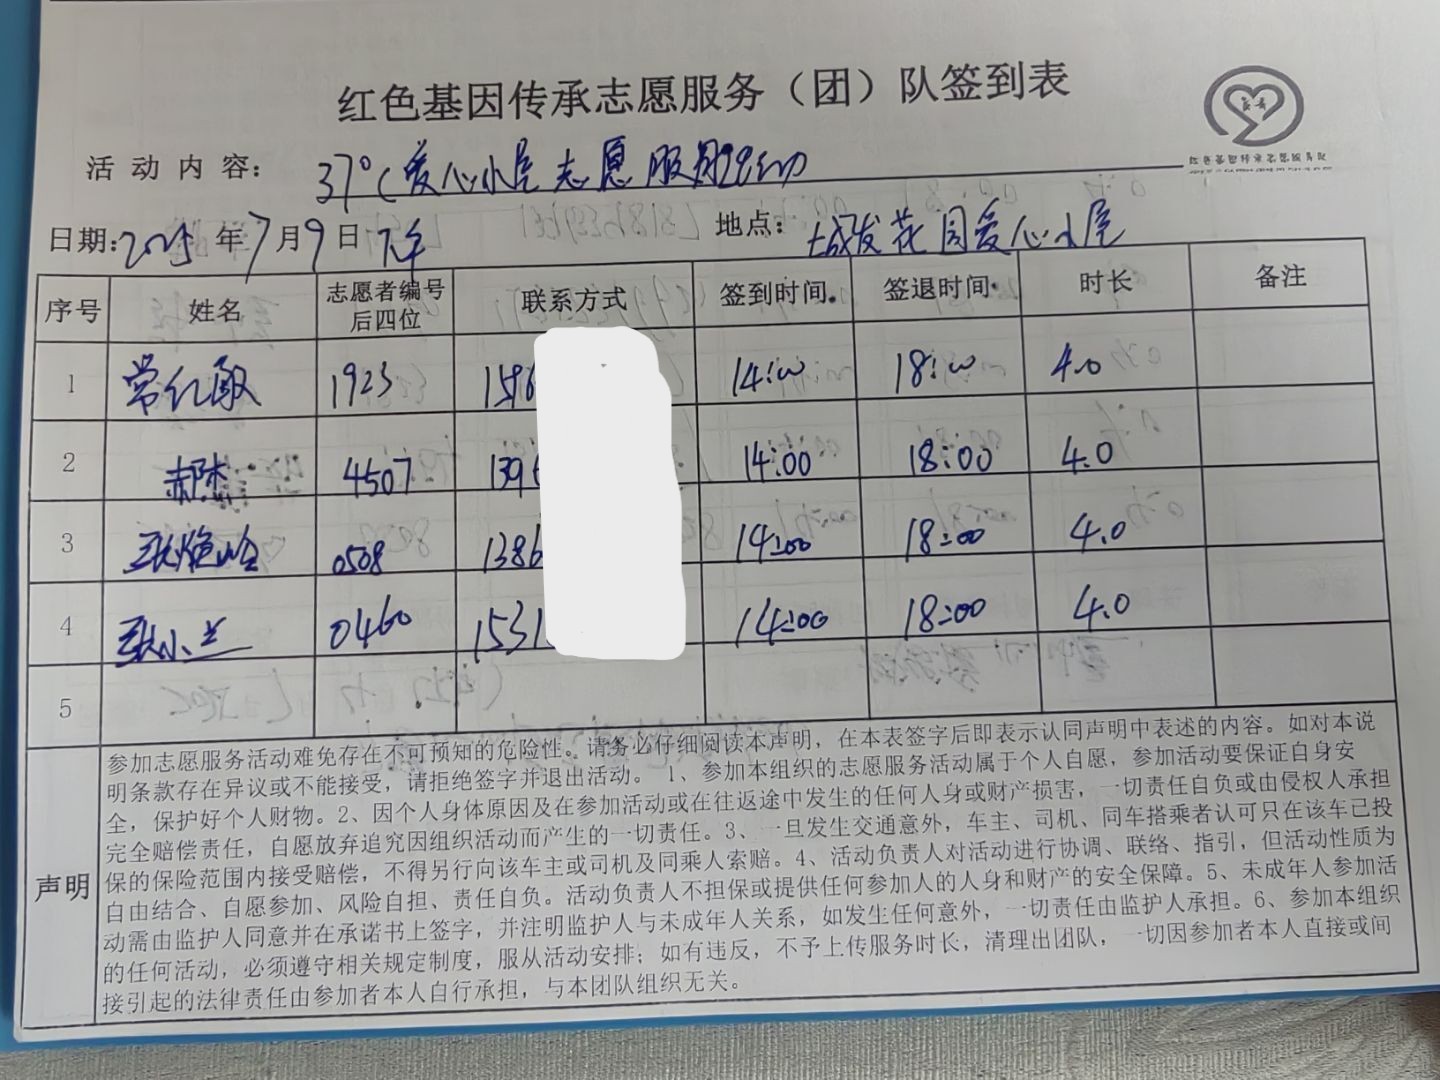 红色基因传承志愿服务（团）队签到表
活动内容： 37°C爱心小屋志愿服务活动
日期: 2025年7月9日 下午 地点： 城发花园爱心小屋
序号 姓名 志愿者编号后四位 联系方式 签到时间 签退时间 时长 备注
1 常红敏 1923 1596 14:00 18:00 4.0
2 郝杰 4507 1396 14:00 18:00 4.0
3 0508 1386 14:00 18:00 4.0
4 小兰 0460 1531 14:00 18:00 4.0
5
声明
参加志愿服务活动难免存在不可预知的危险性。请务必仔细阅读本声明，在本表签字后即表示认同声明中表述的内容。如对本说
明条款存在异议或不能接受，请拒绝签字并退出活动。 1、参加本组织的志愿服务活动属于个人自愿，参加活动要保证自身安
全，保护好个人财物。2、因个人身体原因及在参加活动或在往返途中发生的任何人身或财产损害，一切责任自负或由侵权人承担
完全赔偿责任，自愿放弃追究因组织活动而产生的一切责任。3、一旦发生交通意外，车主、司机、同车搭乘者认可只在该车已投
保的保险范围内接受赔偿，不得另行向该车主或司机及同乘人索赔。4、活动负责人对活动进行协调、联络、指引，但活动性质为
自由结合、自愿参加、风险自担、责任自负。活动负责人不担保或提供任何参加人的人身和财产的安全保障。5、未成年人参加活
动需由监护人同意并在承诺书上签字，并注明监护人与未成年人关系，如发生任何意外，一切责任由监护人承担。6、参加本组织
的任何活动，必须遵守相关规定制度，服从活动安排；如有违反，不予上传服务时长，清理出团队，一切因参加者本人直接或间
接引起的法律责任由参加者本人自行承担，与本团队组织无关。